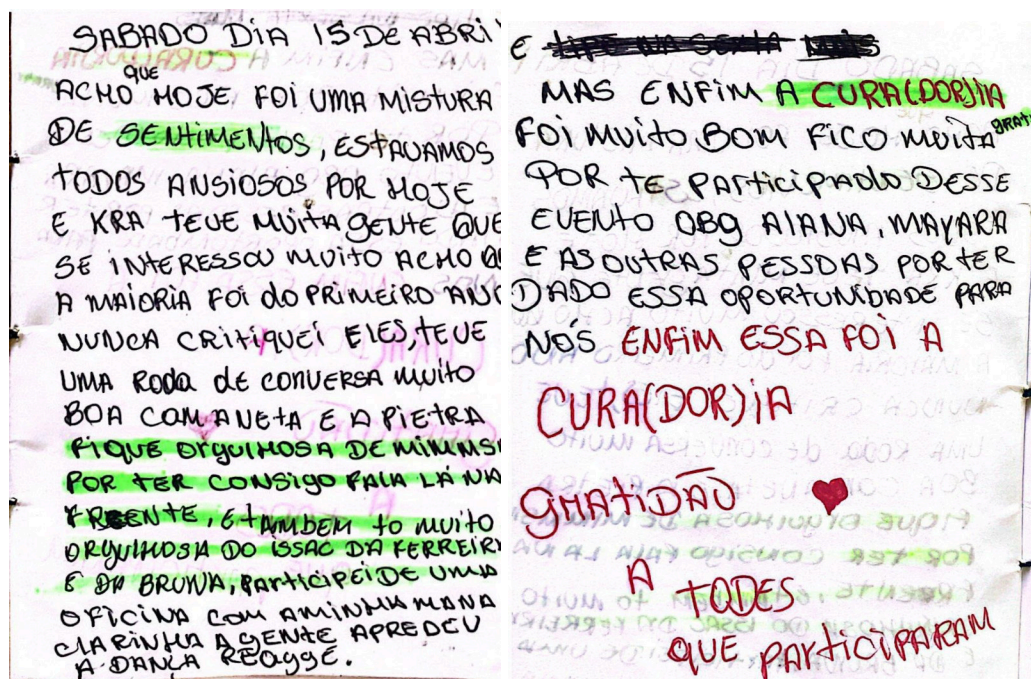 SABADO DIA 15 DE ABRI
ACHO QUE HOJE FOI UMA MISTURA
DE SENTIMENTOS, ESTAVAMOS
TODOS ANSIOSOS POR HOJE
E KRA TEVE MUITA GENTE QUE
SE INTERESSOU MUITO ACHO
A MAIORIA FOI do PRIMEIRO ANO
NUNCA CRITIQUEI ELES, TEVE
UMA Roda de CONVERSA MUITO
BOA COM A VETA E A PIETRA
FIQUE ORguLHOSA DE MIM MS
POR TER CONSIgo FALA LÁ NA
FREENTE, E tAMBEM to MUITO
ORguLHOSA DO ISSAC DA FERREIR
E DA BRUNA, PARtiCiPEI DE UMA
OFICINA COM A MINHA MANA
CLARINHA A gENTE APREDEU
A DANÇA REAggE.
E
MAS ENFIM A CURA(DOR)IA
FOI MUITO BOM FICO MUITA gRAtA
POR TE PARtiCiPADO DESSE
EVENTO OBg AIANA, MAYARA
E AS OUTRAS PESSOAS POR TER
DADO ESSA OPORTUNIDADE PARA
NÓS ENFIM ESSA FOI A
CURA(DOR)IA
gRATIDÃO
A TODES
QUE PARtiCiPARAM